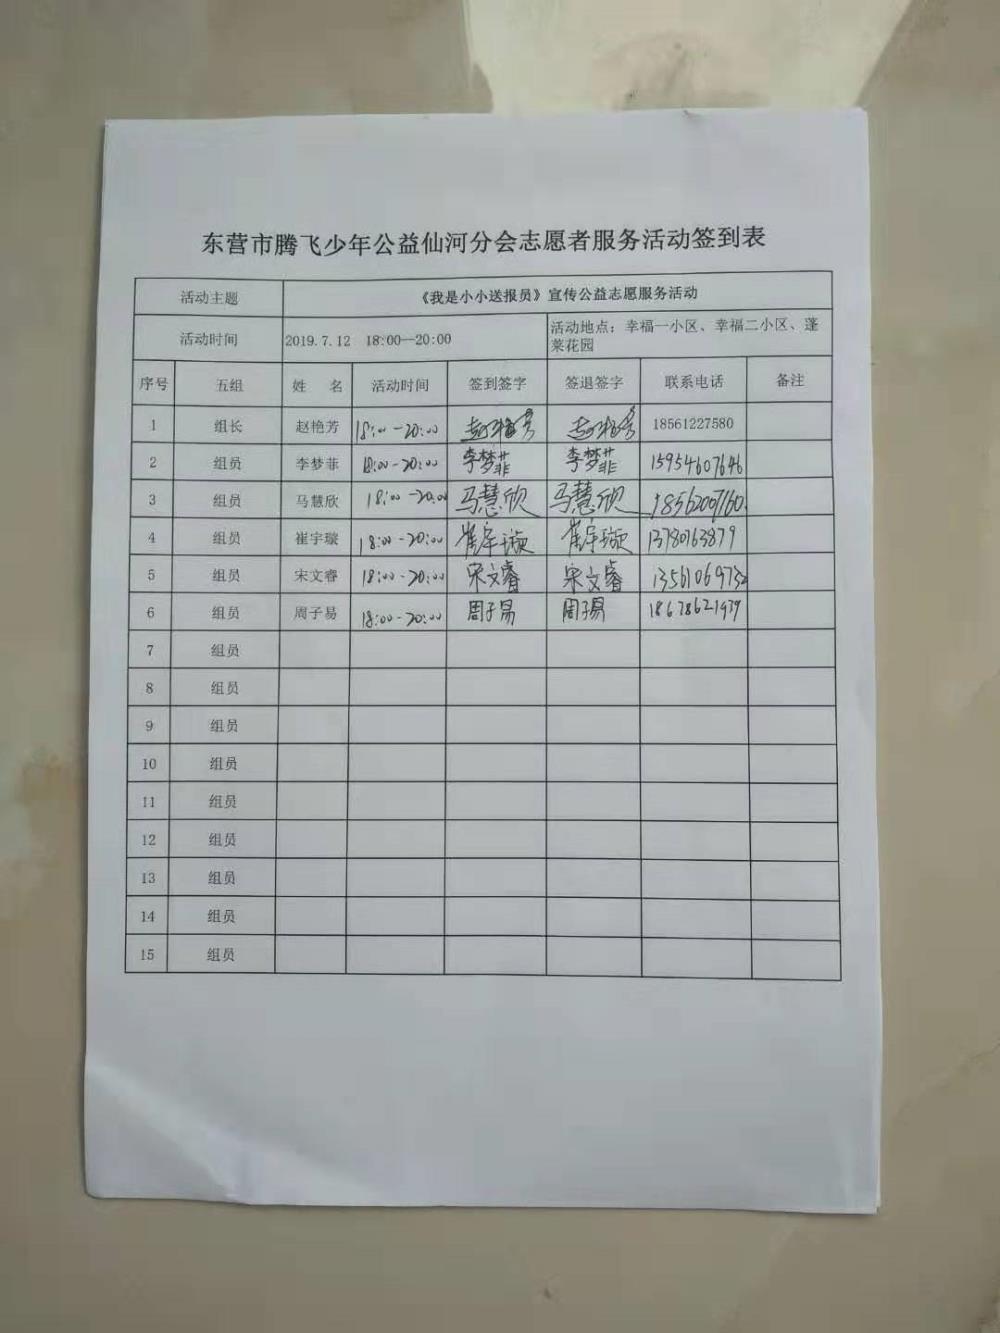 东营市腾飞少年公益仙河分会志愿者服务活动签到表
活动主题 《我是小小送报员》宣传公益志愿服务活动
活动时间 2019.7.12 18:00—20:00 活动地点：幸福一小区、幸福二小区、蓬
莱花园
序号 五组 姓 名 活动时间 签到签字 签退签字 联系电话 备注
1 组长 赵艳芳 18:00-20:00 赵艳芳 赵艳芳 18561227580
2 组员 李梦菲 18:00-20:00 李梦菲 李梦菲 15954607646
3 组员 马慧欣 18:00-20:00 马慧欣 马慧欣
4 组员 崔宇璇 18:00-20:00 崔宇璇 崔宇璇 13780763879
5 组员 宋文睿 18:00-20:00 宋文睿 宋文睿 13561069732
6 组员 周子易 18:00-20:00 周子易 周子易
7 组员
8 组员
9 组员
10 组员
11 组员
12 组员
13 组员
14 组员
15 组员